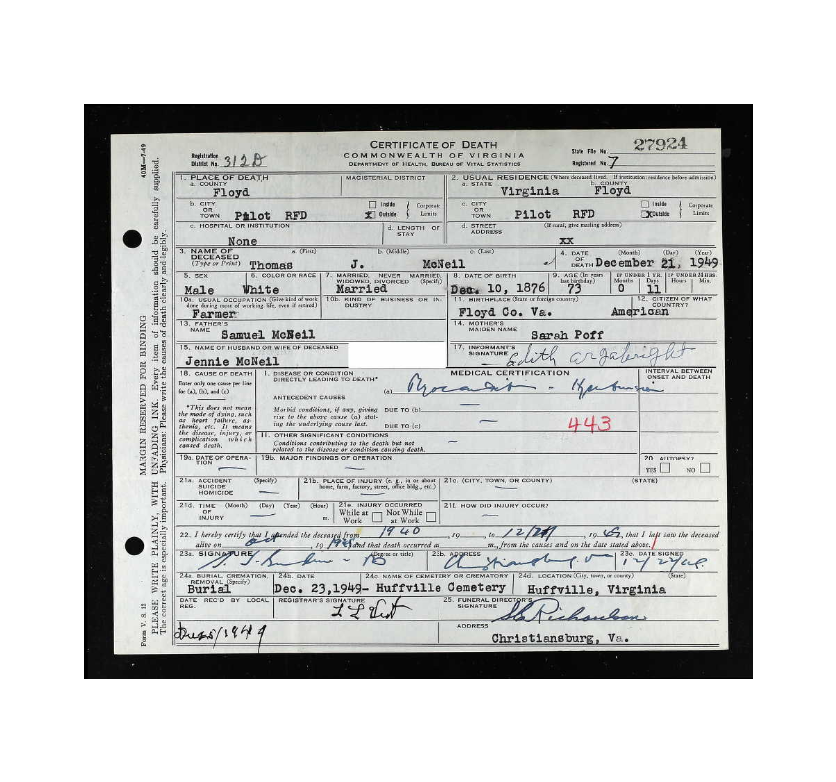 Form V. S. 12
MARGIN RESERVED FOR BINDING
40M—7-49
PLEASE WRITE PLAINLY, WITH UNFADING INK. Every item of information should be carefully supplied.
The correct age is especially important. Physicians: Please write the causes of death clearly and legibly.
CERTIFICATE OF DEATH
COMMONWEALTH OF VIRGINIA
DEPARTMENT OF HEALTH, BUREAU OF VITAL STATISTICS
Registration District No. 312D
State File No. 27924
Registered No. 7
1. PLACE OF DEATH
a. COUNTY
Floyd
MAGISTERIAL DISTRICT
2. USUAL RESIDENCE (Where deceased lived. If institution: residence before admission)
a. STATE b. COUNTY
Virginia Floyd
b. CITY OR TOWN Pilot RFD
Inside
X Outside
Corporate Limits
c. CITY OR TOWN Pilot RFD
Inside
X Outside
Corporate Limits
c. HOSPITAL OR INSTITUTION
None
d. LENGTH OF STAY
d. STREET ADDRESS (If rural, give mailing address)
xx
3. NAME OF DECEASED (Type or Print)
a. (First) b. (Middle) c. (Last)
Thomas J. McNeil
4. DATE OF DEATH (Month) (Day) (Year)
December 21, 1949
5. SEX
Male
6. COLOR OR RACE
White
7. MARRIED, NEVER MARRIED, WIDOWED, DIVORCED (Specify)
Married
8. DATE OF BIRTH
Dec. 10, 1876
9. AGE (In years last birthday)
73
IF UNDER 1 YR. Months Days
0 11
IF UNDER 24 HRS. Hours Min.
10a. USUAL OCCUPATION (Give kind of work done during most of working life, even if retired)
Farmer
10b. KIND OF BUSINESS OR INDUSTRY
11. BIRTHPLACE (State or foreign country)
Floyd Co. Va.
12. CITIZEN OF WHAT COUNTRY?
American
13. FATHER'S NAME
Samuel McNeil
14. MOTHER'S MAIDEN NAME
Sarah Poff
15. NAME OF HUSBAND OR WIFE OF DECEASED
Jennie McNeil
17. INFORMANT'S SIGNATURE Edith Argabright
18. CAUSE OF DEATH
Enter only one cause per line for (a), (b), and (c)
*This does not mean the mode of dying, such as heart failure, asthenia, etc. It means the disease, injury, or complication which caused death.
MEDICAL CERTIFICATION
INTERVAL BETWEEN ONSET AND DEATH
I. DISEASE OR CONDITION DIRECTLY LEADING TO DEATH*
(a)
ANTECEDENT CAUSES
Morbid conditions, if any, giving rise to the above cause (a) stating the underlying cause last.
DUE TO (b)
DUE TO (c)
443
II. OTHER SIGNIFICANT CONDITIONS
Conditions contributing to the death but not related to the disease or condition causing death.
19a. DATE OF OPERATION
19b. MAJOR FINDINGS OF OPERATION
20. AUTOPSY?
YES NO
21a. ACCIDENT SUICIDE HOMICIDE (Specify)
21b. PLACE OF INJURY (e. g., in or about home, farm, factory, street, office bldg., etc.)
21c. (CITY, TOWN, OR COUNTY) (STATE)
21d. TIME OF INJURY (Month) (Day) (Year) (Hour) m.
21e. INJURY OCCURRED
While at Work Not While at Work
21f. HOW DID INJURY OCCUR?
22. I hereby certify that I attended the deceased from 1940, 19, to 12/21, 1949, that I last saw the deceased
alive on Oct, 19, and that death occurred m., from the causes and on the date stated above.
23a. SIGNATURE (Degree or title)
23b. ADDRESS
23c. DATE SIGNED
24a. BURIAL, CREMATION, REMOVAL (Specify)
Burial
24b. DATE
Dec. 23, 1949-
24c. NAME OF CEMETERY OR CREMATORY
Huffville Cemetery
24d. LOCATION (City, town, or county) (State)
Huffville, Virginia
DATE REC'D BY LOCAL REG.
REGISTRAR'S SIGNATURE
25. FUNERAL DIRECTOR'S SIGNATURE
Richardson
ADDRESS
Christiansburg, Va.